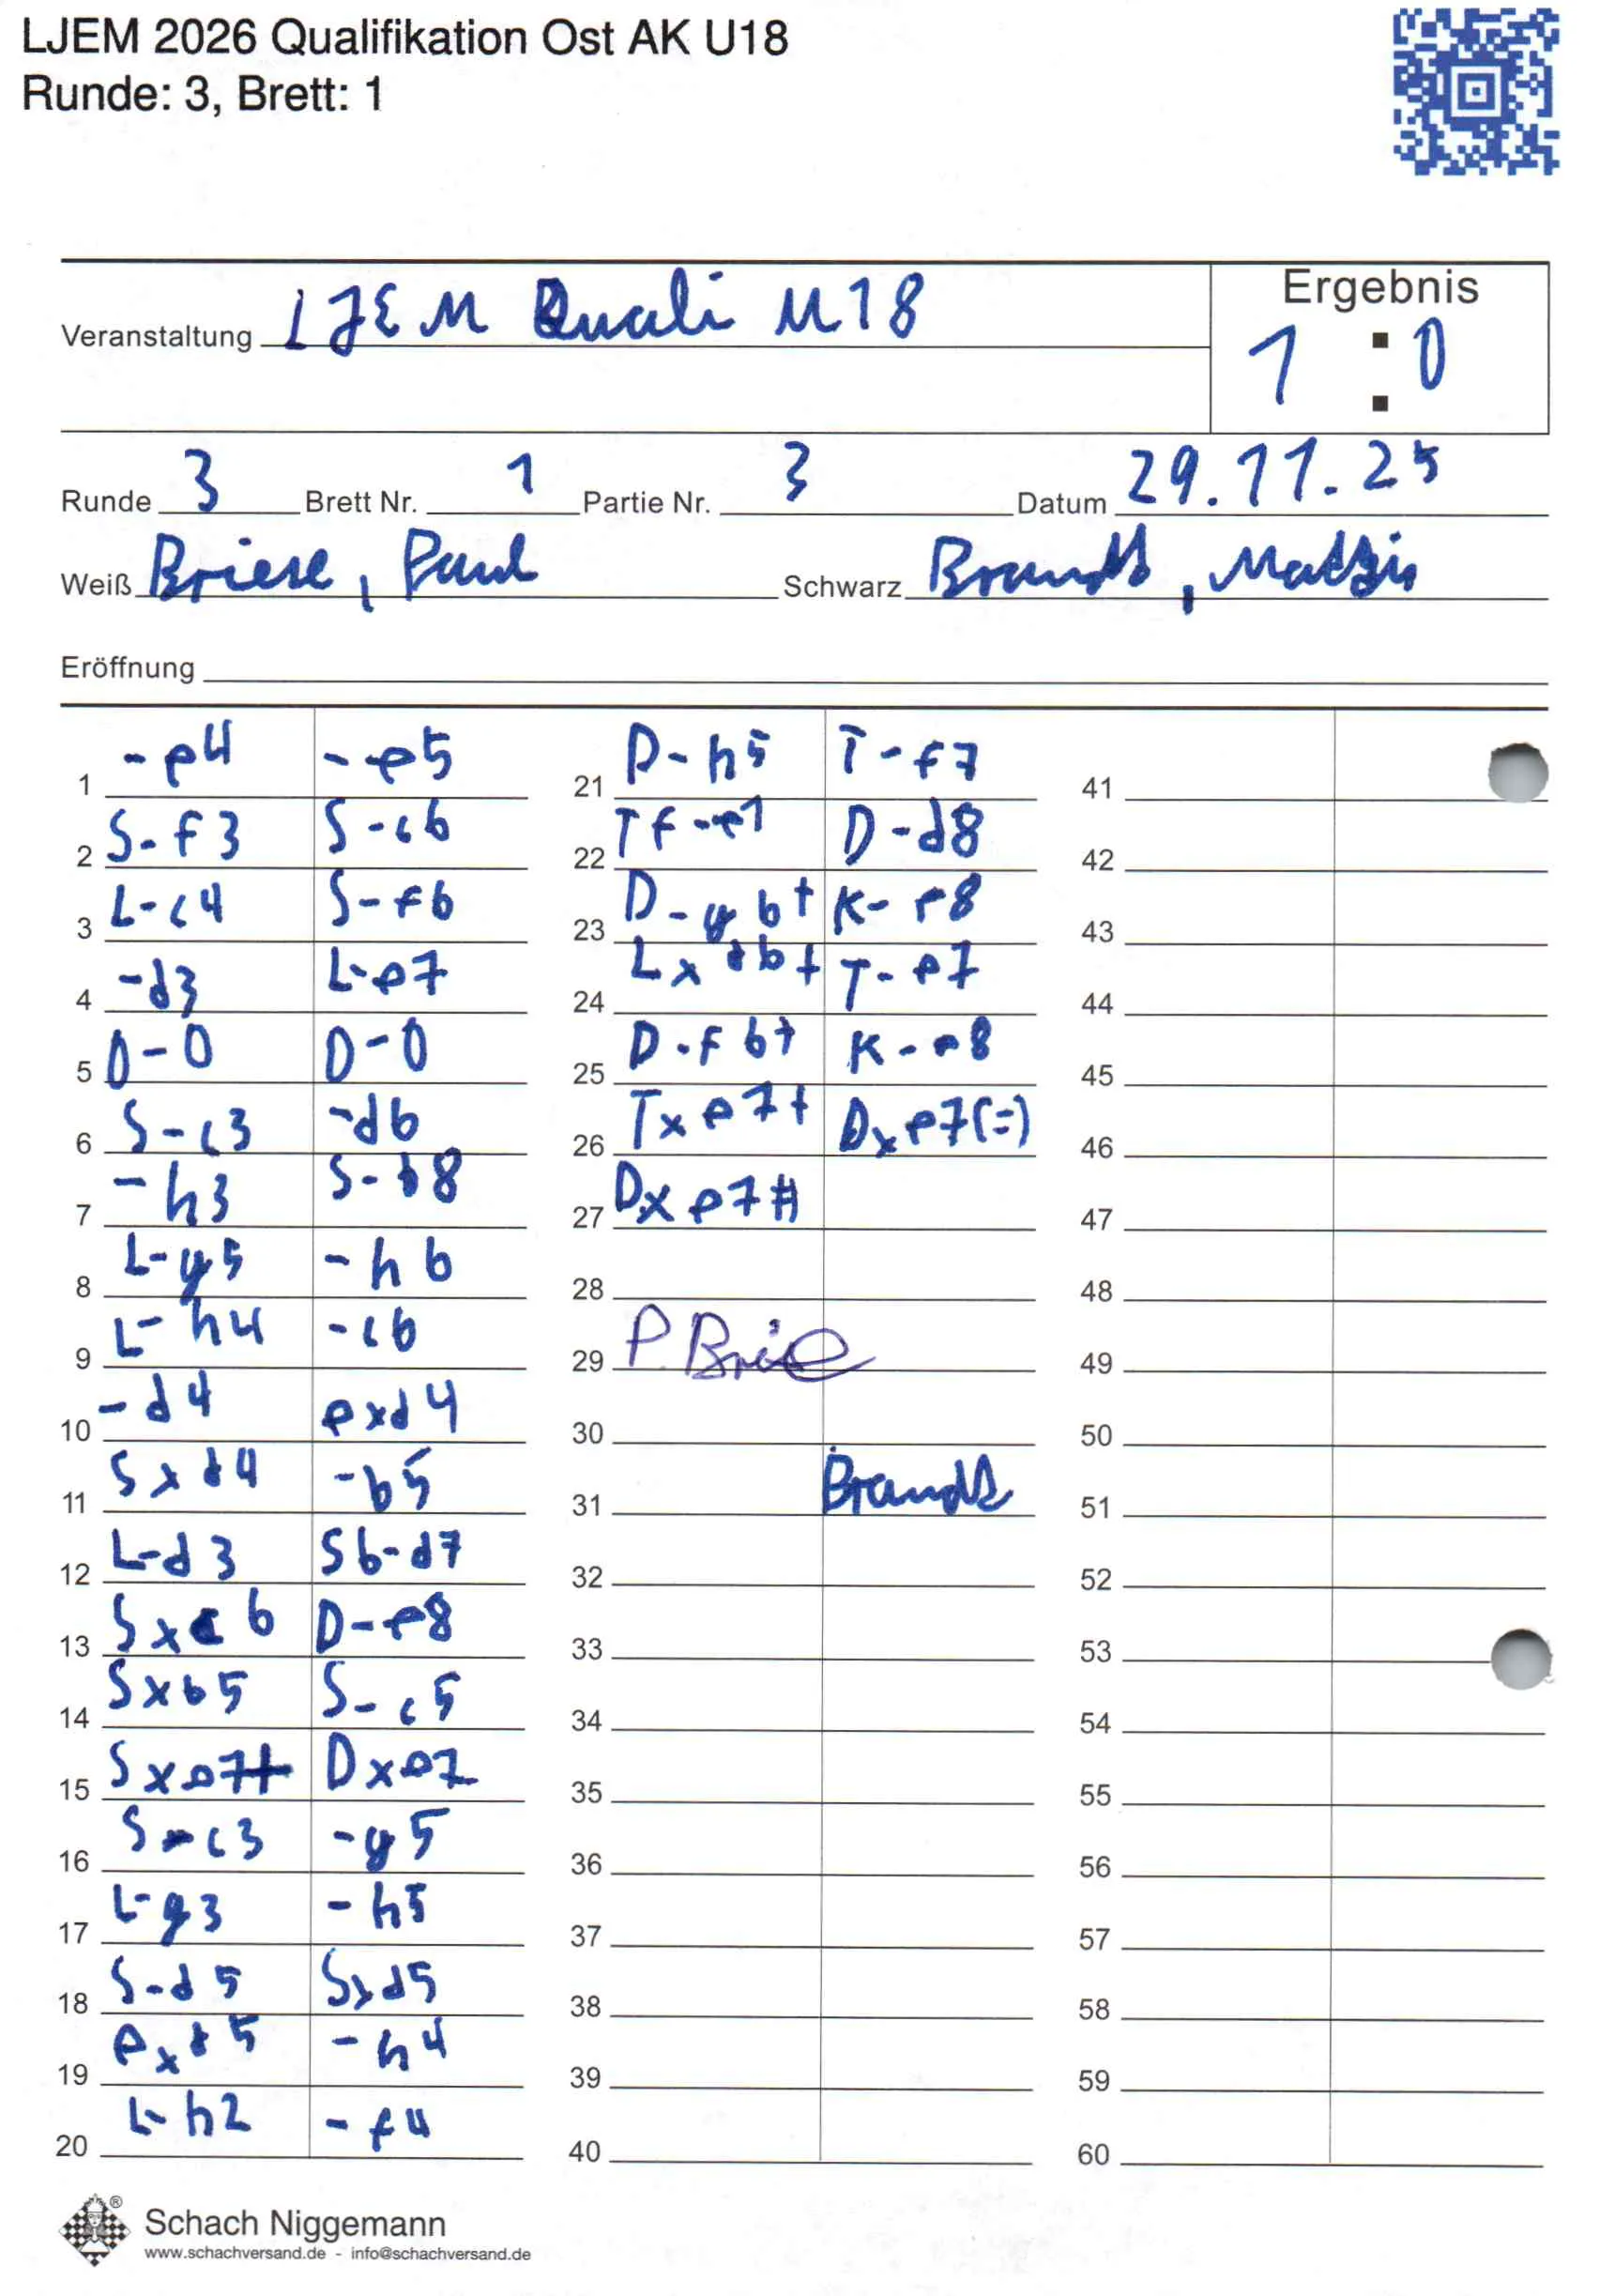 LJEM 2026 Qualifikation Ost AK U18
Runde: 3, Brett: 1
Ergebnis
Veranstaltung LJEM Quali U18
1 : 0
Runde 3 Brett Nr. 1 Partie Nr. 3 Datum 29.11.25
Weiß Briese, Paul Schwarz Brandt, Mattis
Eröffnung
1 -e4 -e5
2 S-f3 S-c6
3 L-c4 S-f6
4 -d3 L-e7
5 0-0 0-0
6 S-c3 -d6
7 -h3 S-b8
8 L-g5 -h6
9 L-h4 -c6
10 -d4 exd4
11 Sxd4 -b5
12 L-d3 Sb-d7
13 Sxc6 D-e8
14 Sxb5 S-c5
15 Sxe7+ Dxe7
16 S-c3 -g5
17 L-g3 -h5
18 S-d5 Sxd5
19 exd5 -h4
20 L-h2 -f4
21 D-h5 T-f7
22 Tf-e1 D-d8
23 D-g6+ K-f8
24 Lxd6+ T-e7
25 D-f6+ K-e8
26 Txe7+ Dxe7(=)
27 Dxe7#
28
29 P. Briese
30
31 Brandt
32
33
34
35
36
37
38
39
40
41
42
43
44
45
46
47
48
49
50
51
52
53
54
55
56
57
58
59
60
Schach Niggemann
www.schachversand.de - info@schachversand.de